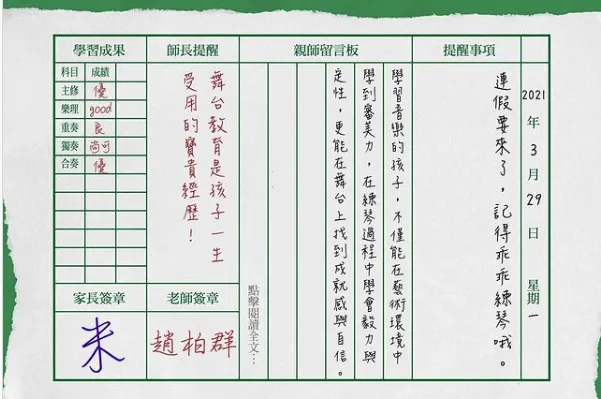 2021年3月29日 星期一
提醒事項
連假要來了，記得乖乖練琴哦。
親師留言板
學習音樂的孩子，不僅能在藝術環境中
學到審美力，在練琴過程中學會毅力與
定性，更能在舞台上找到成就感與自信。
點擊閱讀全文…
師長提醒
舞台教育是孩子一生
受用的寶貴經歷！
老師簽章
趙柏群
學習成果
科目 成績
主修 優
樂理 good
重奏 良
獨奏 尚可
合奏 優
家長簽章
米